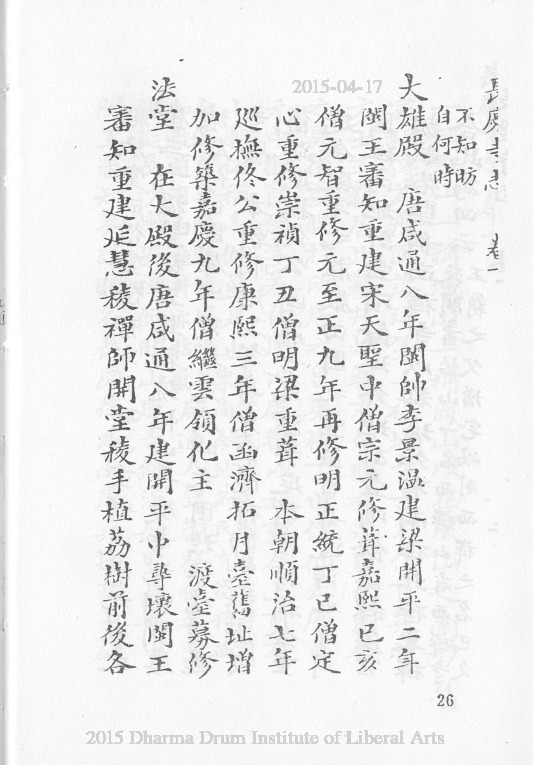 2015-04-17
長慶寺志　卷一
不知昉
自何時
大雄殿　唐咸通八年閩帥李景溫建梁開平二年
閩王審知重建宋天聖中僧宗元修葺嘉熙己亥
僧元智重修元至正九年再修明正統丁巳僧定
心重修崇禎丁丑僧明梁重葺　本朝順治七年
廵撫佟公重修康熙三年僧函濟拓月臺舊址增
加修築嘉慶九年僧繼雲領化主　渡臺募修
法堂　在大殿後唐咸通八年建開平中尋壞閩王
審知重建延慧稜禪師開堂稜手植荔樹前後各
26
2015 Dharma Drum Institute of Liberal Arts